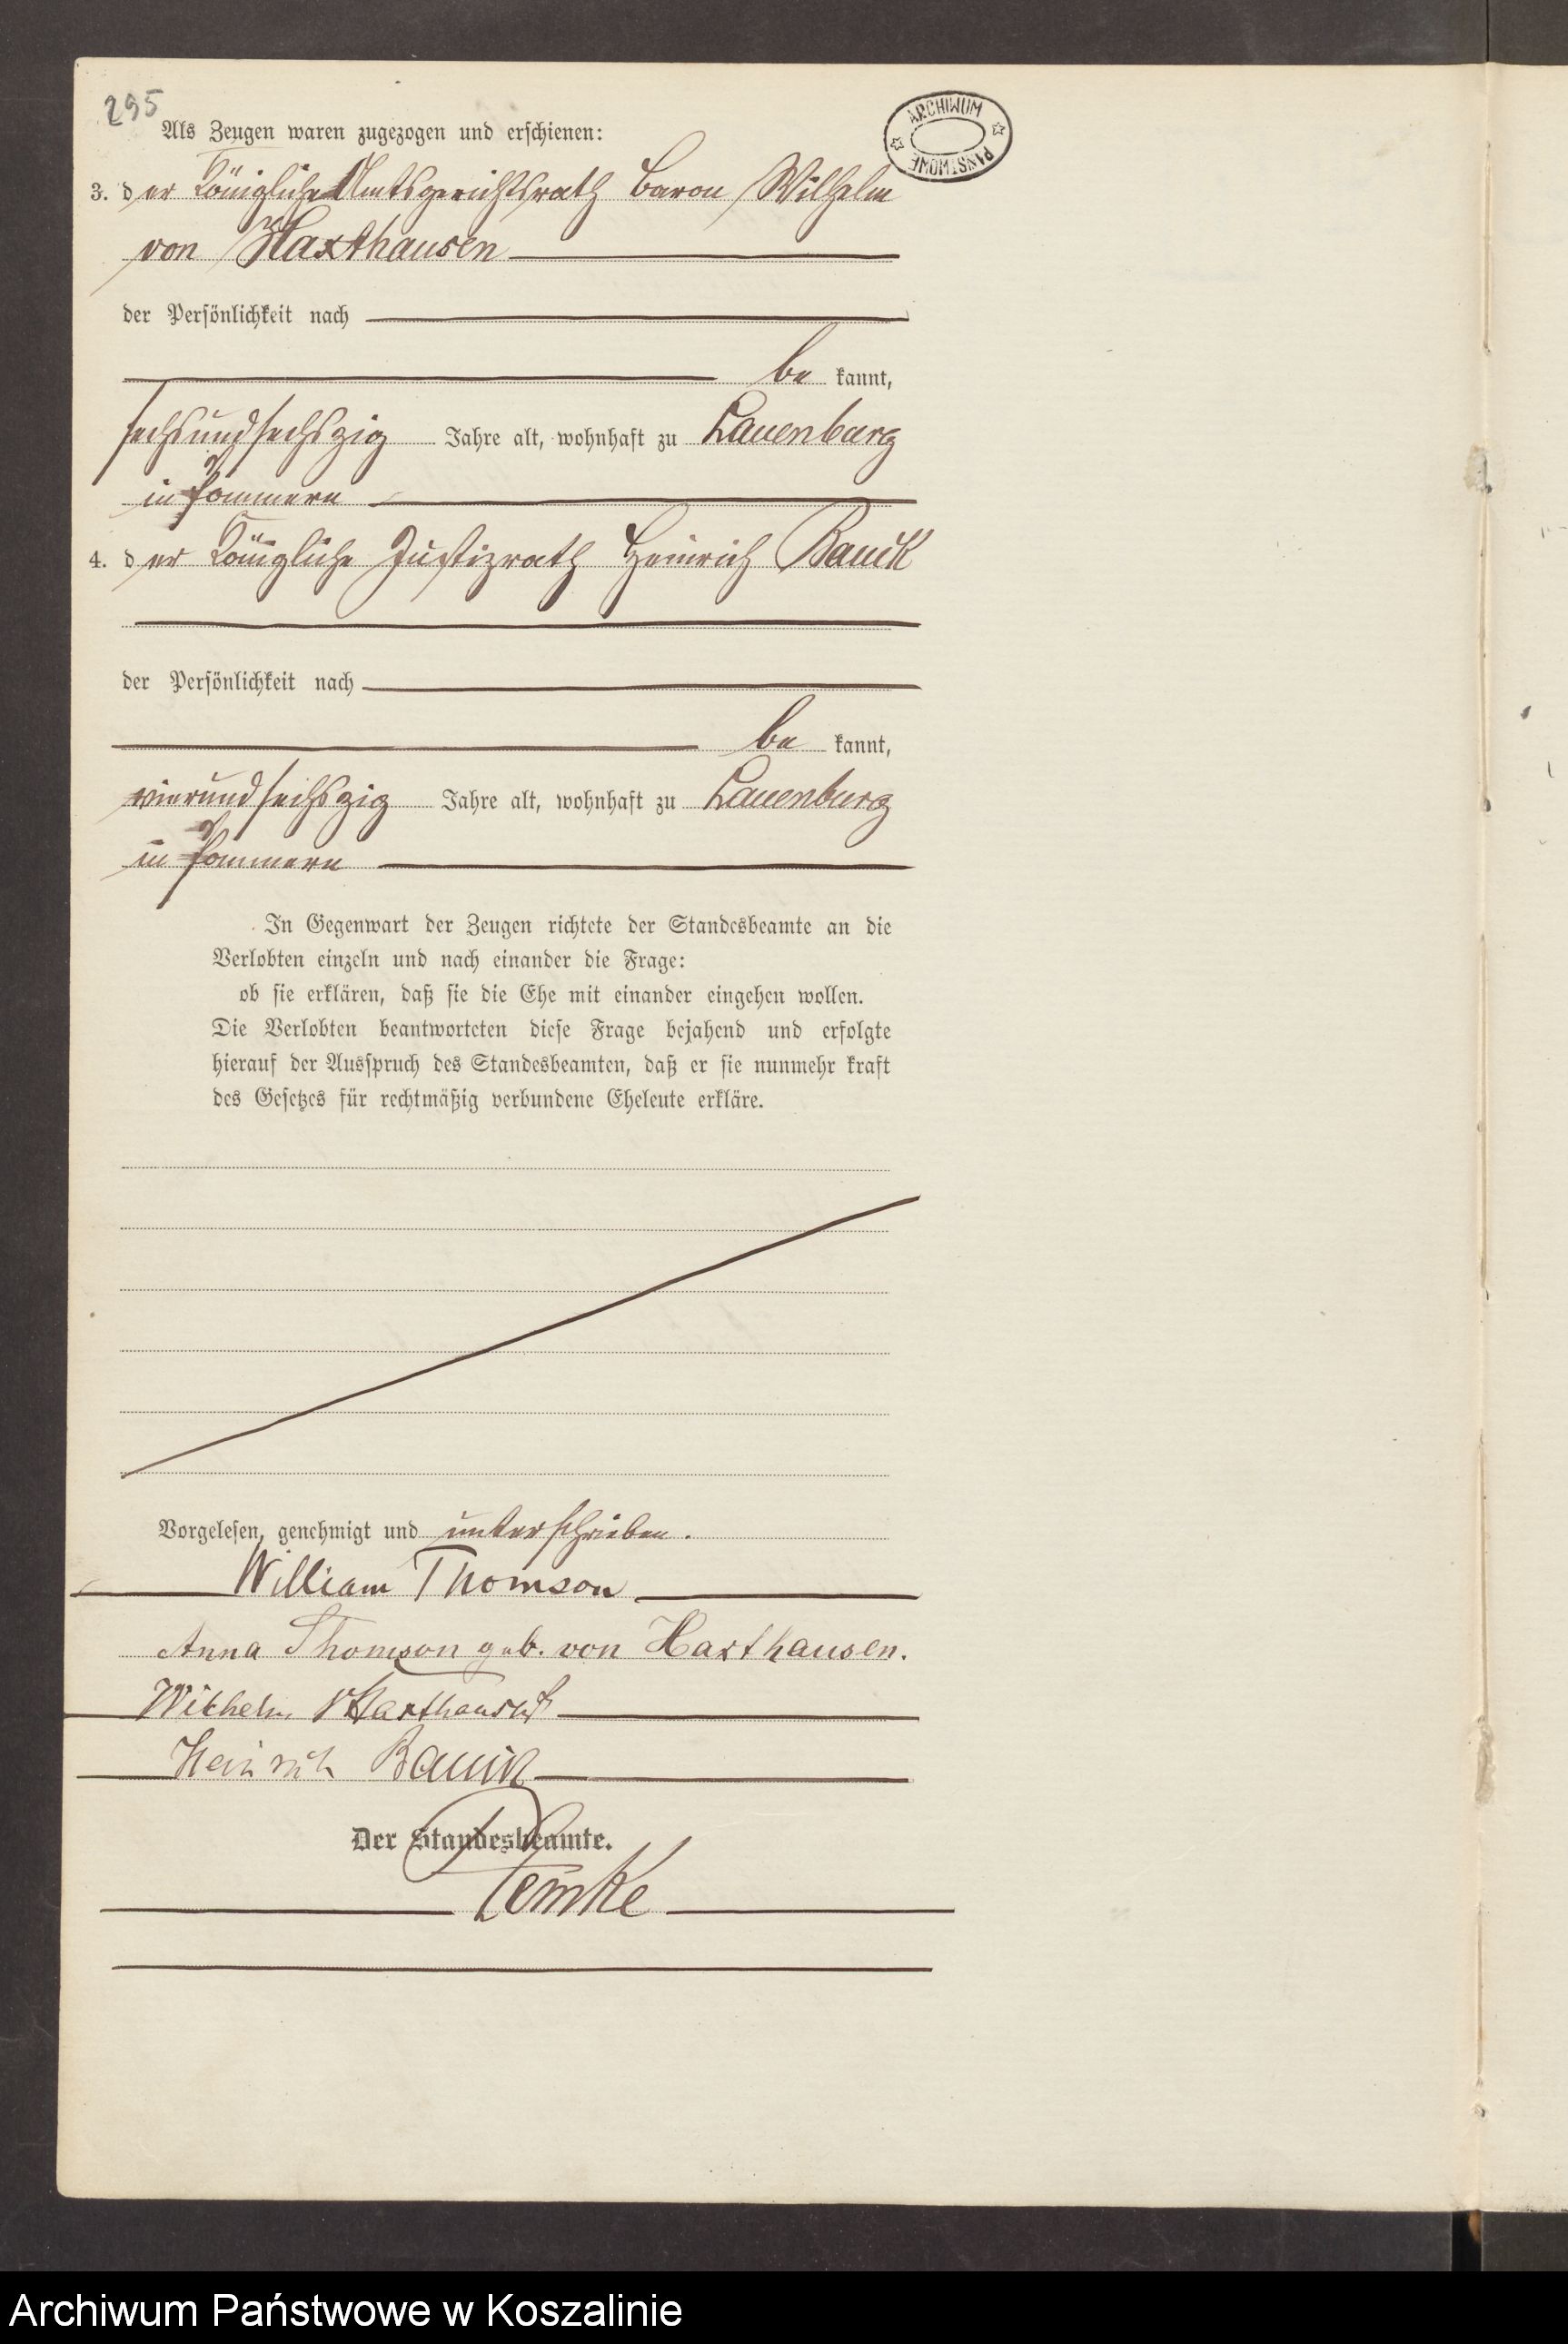 295
ARCHIWUM PAŃSTWOWE
Als Zeugen waren zugezogen und erschienen:
3. der Königliche Amtsgerichtsrath Baron Wilhelm
von Haxthausen
der Persönlichkeit nach
be kannt,
sechsundsechszig Jahre alt, wohnhaft zu Lauenburg
in Pommern
4. der Königliche Justizrath Heinrich Bauck
der Persönlichkeit nach
be kannt,
vierundsechszig Jahre alt, wohnhaft zu Lauenburg
in Pommern
In Gegenwart der Zeugen richtete der Standesbeamte an die
Verlobten einzeln und nach einander die Frage:
ob sie erklären, daß sie die Ehe mit einander eingehen wollen.
Die Verlobten beantworteten diese Frage bejahend und erfolgte
hierauf der Ausspruch des Standesbeamten, daß er sie nunmehr kraft
des Gesetzes für rechtmäßig verbundene Eheleute erkläre.
Vorgelesen, genehmigt und unterschrieben.
William Thomson
Anna Thomson geb. von Haxthausen.
Wilhelm vHaxthausen
Heinrich Bauck
Der Standesbeamte.
Temke
Archiwum Państwowe w Koszalinie